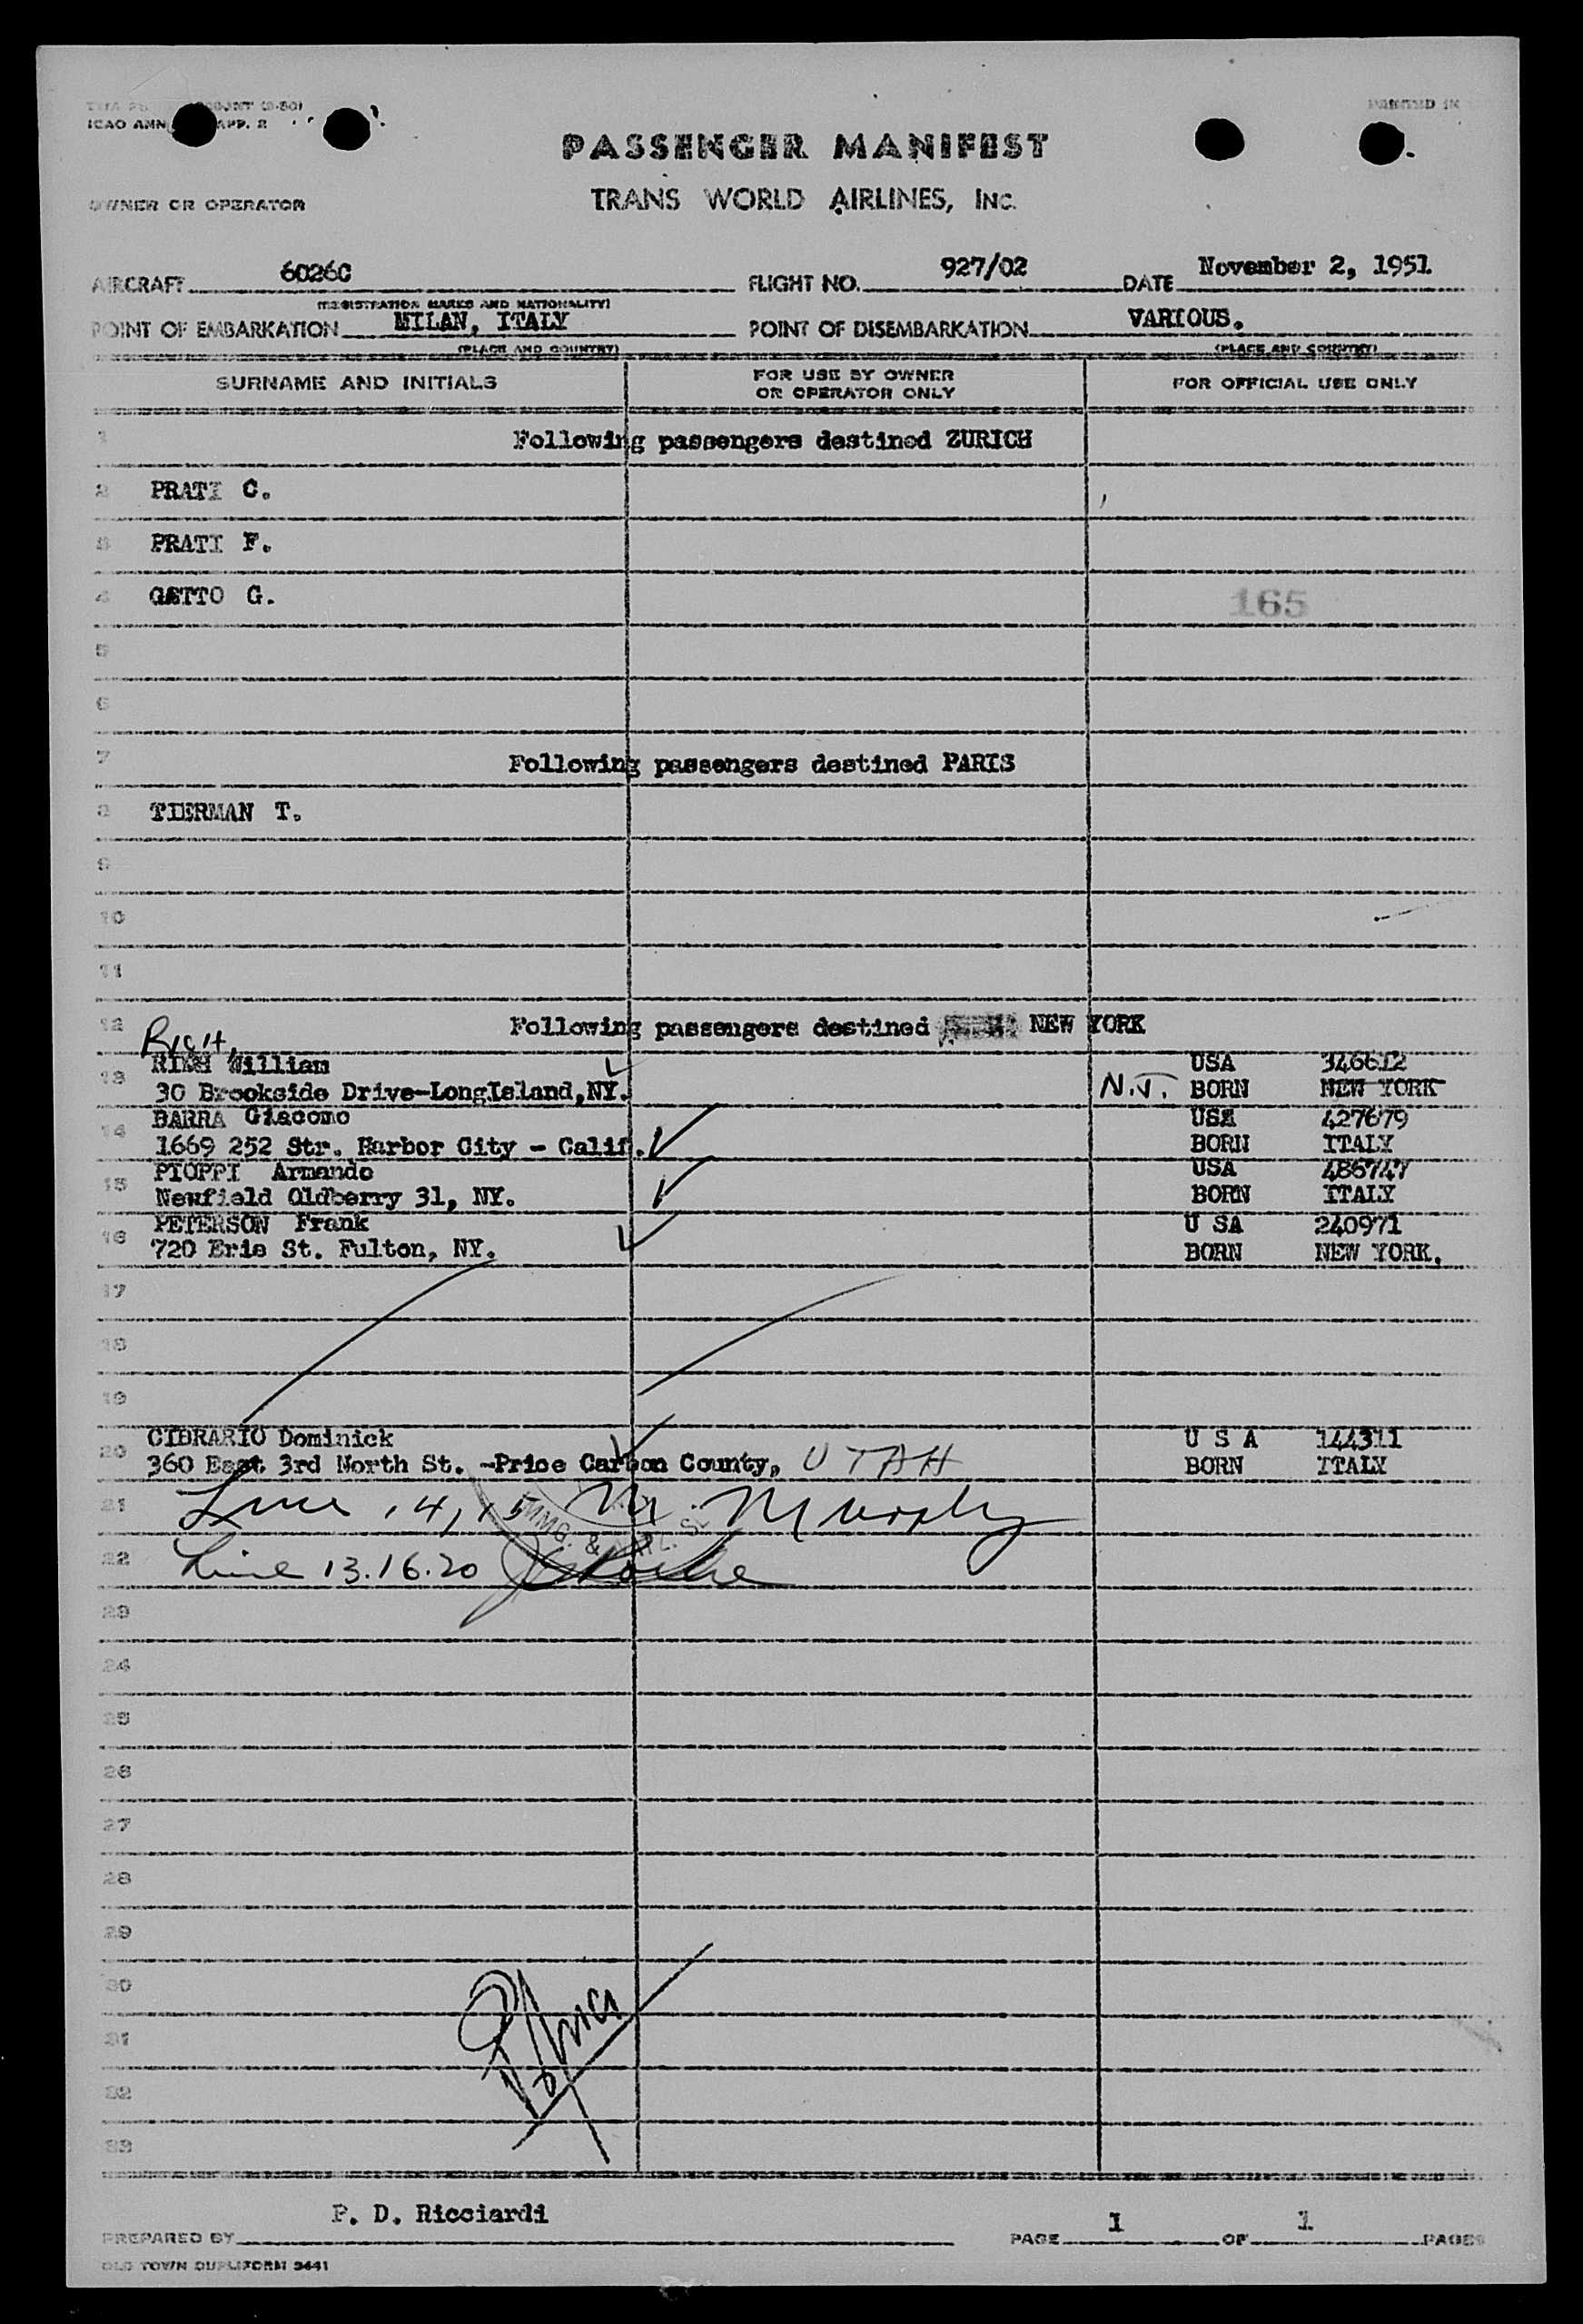 ICAO ANN APP. 2
PRINTED IN
PASSENGER MANIFEST
TRANS WORLD AIRLINES, INC.
OWNER OR OPERATOR
AIRCRAFT 6026C FLIGHT NO. 927/02 DATE November 2, 1951
(REGISTRATION MARKS AND NATIONALITY)
POINT OF EMBARKATION MILAN, ITALY POINT OF DISEMBARKATION VARIOUS.
(PLACE AND COUNTRY) (PLACE AND COUNTRY)
SURNAME AND INITIALS FOR USE BY OWNER OR OPERATOR ONLY FOR OFFICIAL USE ONLY
1 Following passengers destined ZURICH
2 PRATI C.
3 PRATI F.
4 GETTO G. 165
5
6
7 Following passengers destined PARIS
8 TIERMAN T.
9
10
11
12 Following passengers destined NEW YORK
RICH,
13 William USA 346612
30 Brookside Drive-LongIsland,NY. N.J. BORN NEW YORK
14 BARRA Giacomo USA 427679
1669 252 Str. Harbor City - Calif. BORN ITALY
15 PIOPPI Armando USA 486747
Newfield Oldberry 31, NY. BORN ITALY
16 PETERSON Frank U SA 240971
720 Erie St. Fulton, NY. BORN NEW YORK.
17
18
19
20 CIBRARIO Dominick U S A 144311
360 East 3rd North St. -Price Carbon County, UTAH BORN ITALY
21 Line 14, 15 M. Murphy
IMMG. &
22 Line 13.16.20
23
24
25
26
27
28
29
30
31
32
33
P. D. Ricciardi
PREPARED BY PAGE 1 OF 1 PAGES
OLD TOWN DUPLIFORM 3441